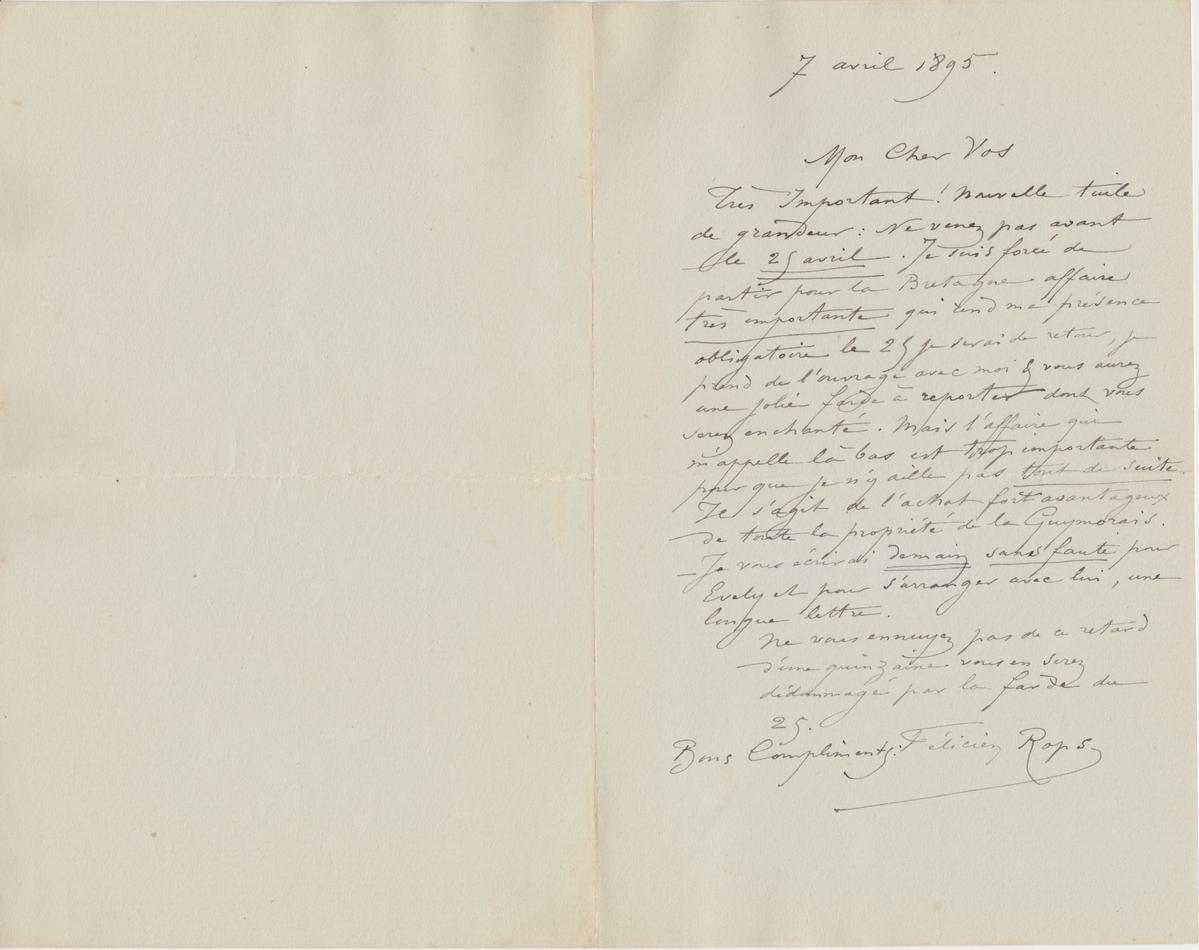 7 avril 1895.
Mon Cher Vos
Très Important ! Nouvelle tuile
de grandeur : Ne venez pas avant
le 25 avril . Je suis forcé de
partir pour la Bretagne affaire
très importante qui rend ma présence
obligatoire le 25 je serai de retour, je
prend de l'ouvrage avec moi & vous aurez
une jolie farde à reporter dont vous
serez enchanté. Mais l'affaire qui
m'appelle là bas est trop importante
pour que je n'y aille pas tout de suite.
Il s'agit de l'achat fort avantageux
de toute la propriété de la Guymorais.
– Je vous écrirai demain sans faute pour
Evely et pour s'arranger avec lui, une
longue lettre.
Ne vous ennuyez pas de ce retard
d'une quinzaine vous en serez
dédommagé par la farde du
25.
Bons Compliments. Félicien Rops